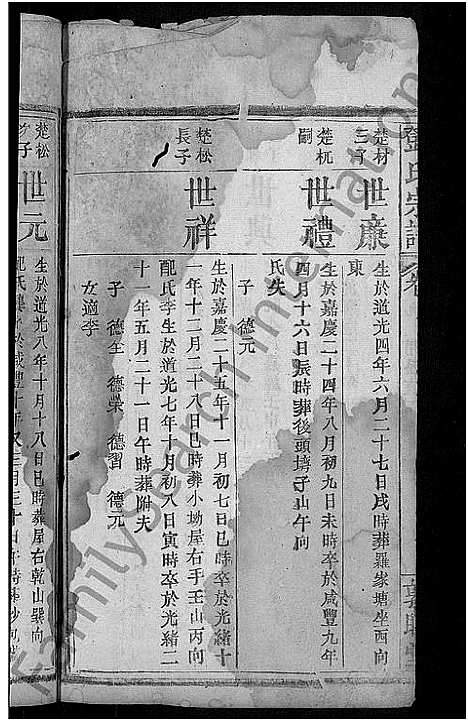 鄧氏宗譜
卷
楚材
三育
世廉
生於道光四年六月二十七日戌時葬羅家塘坐西向
東
楚杬
嗣
世禮
生於嘉慶二十四年八月初九日未時卒於咸豐九年
四月十六日辰時葬後頭塆子山午向
氏失
子 德元
楚松
長子
世祥
生於嘉慶二十五年十一月初七日巳時卒於光緒十
一年十二月二十八日巳時葬小坳屋右手壬山丙向
配氏李生於道光七年十月初八日寅時卒於光緒二
十一年五月二十一日午時葬附夫
子 德全 德榮 德習 德元
女適李
楚松
子
世元
生於道光八年十月十八日巳時葬屋右乾山巽向
FamilySearch International